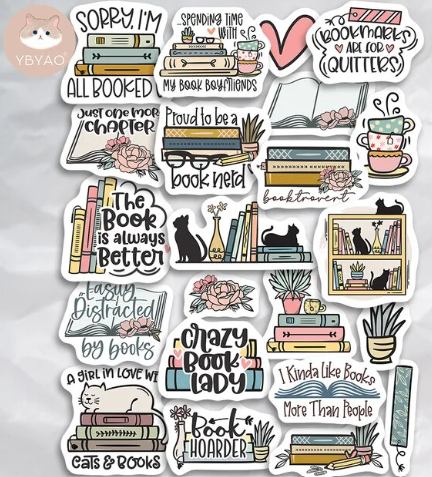 YBYAO
SORRY, I'M
ALL BOOKED
...SPENDING TIME
WITH
MY BOOK BOYFRIENDS
BOOKMARKS
ARE FOR
QUITTERS
JUST ONE MOR
CHAPTER
Proud to be a
book nerd
booktrovert
The
Book
is always
Better
Easily
Distracted
by books
Crazy
Book
LADY
I Kinda Like Books
More Than People
A GIRL IN LOVE WI
CATS & BOOKS
Book
HOARDER